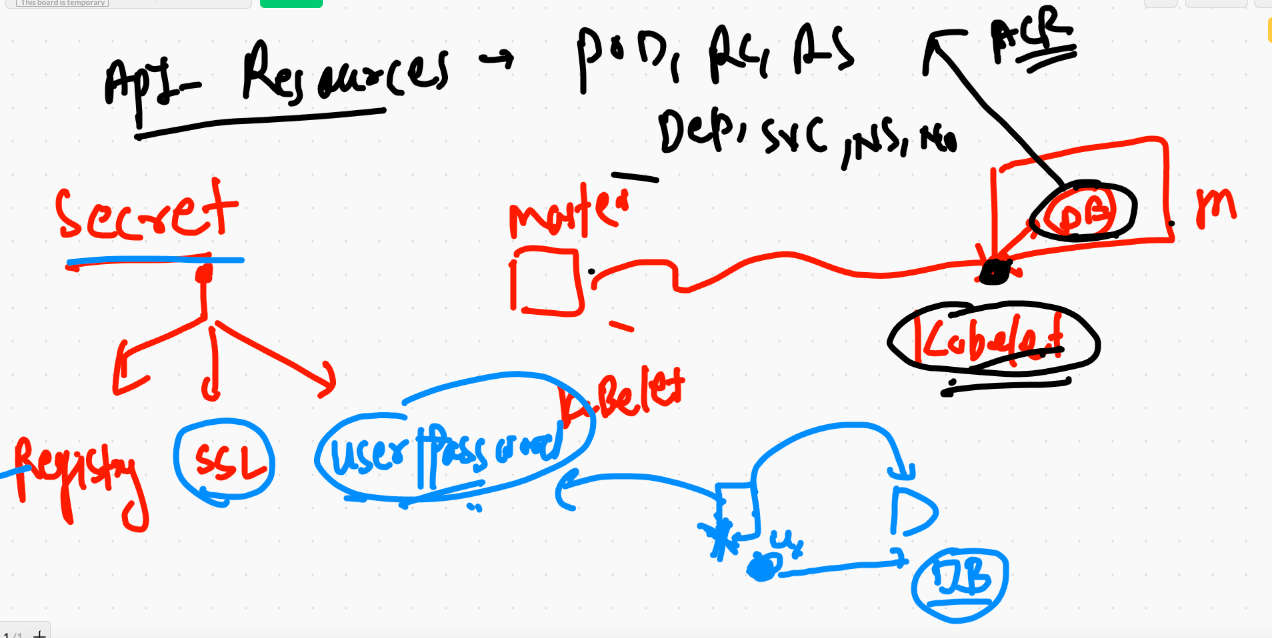 This board is temporary
ApI- Resources → POD, RC, RS
Dep, svc, NS, No
ACR
Secret
Master
DB
m
Kubelet
Registry
SSL
user/Password
Belet
D
DB
1/1 +